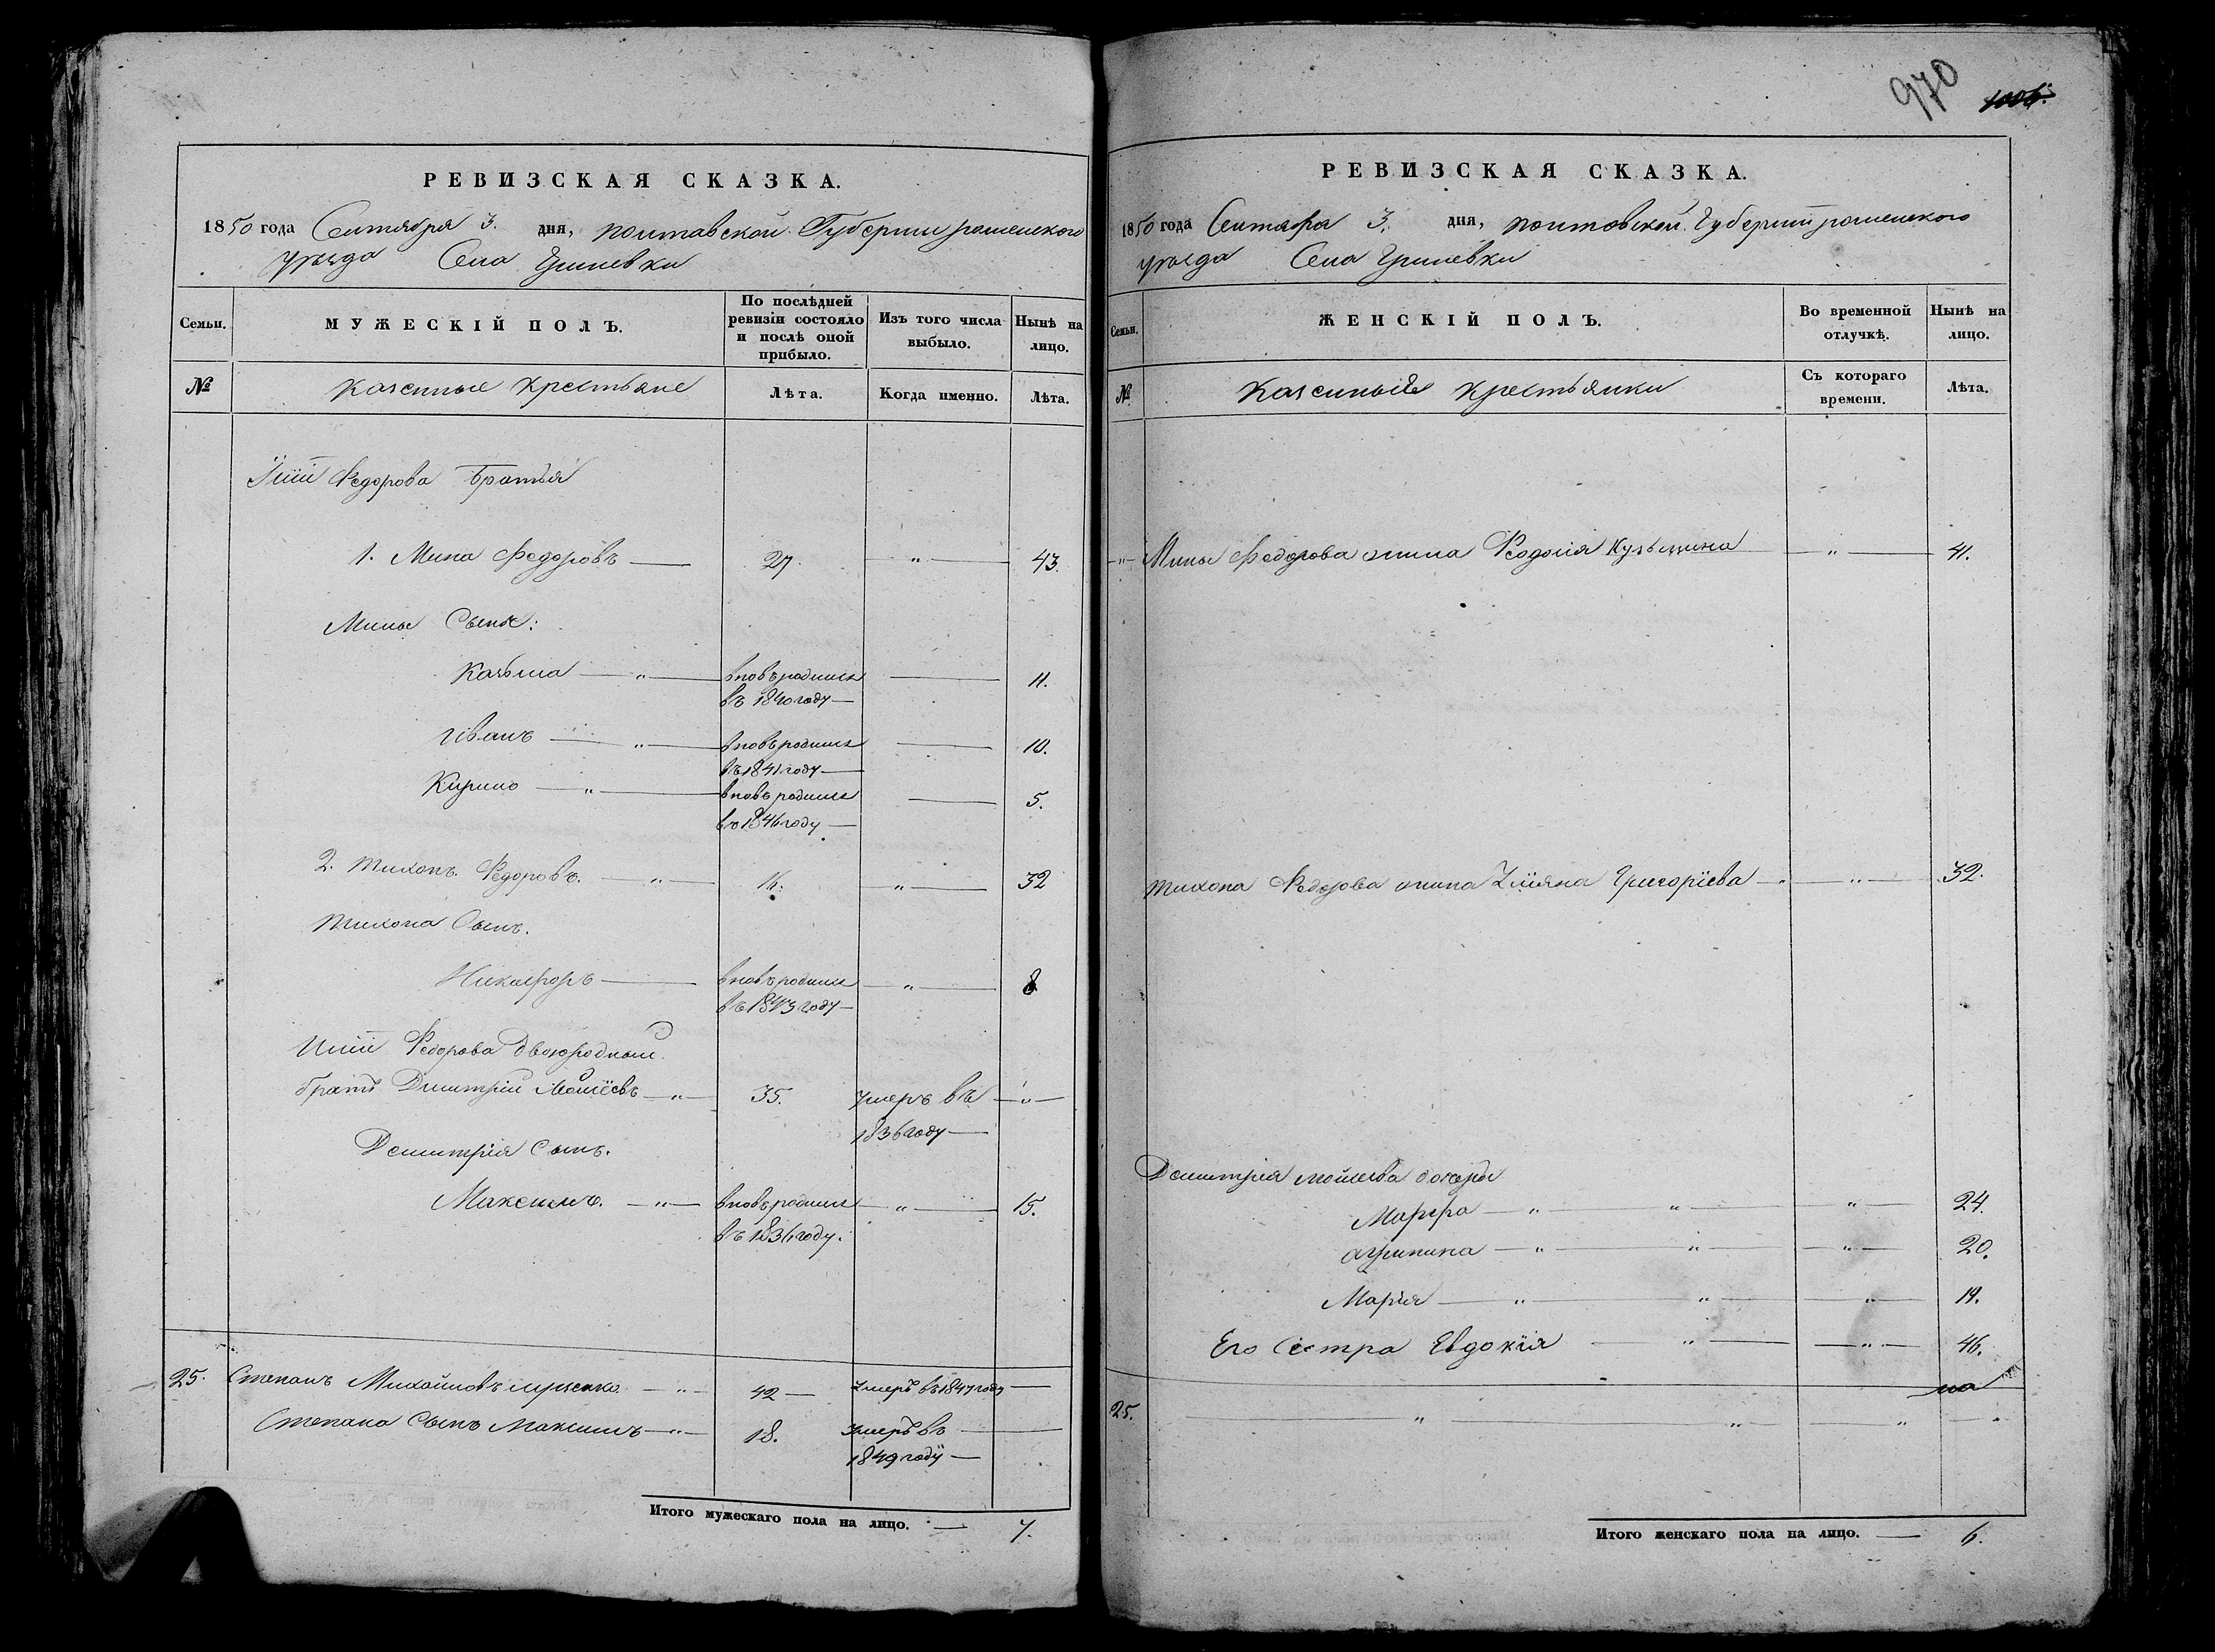 РЕВИЗСКАЯ СКАЗКА.
1850 года Сентября 3. дня, полтавской Губернии роменского
уезда Села Гриневки
Семьи.
МУЖЕСКІЙ ПОЛЪ.
По послѣдней
ревизіи состояло
и послѣ оной
прибыло.
Изъ того числа
выбыло.
Нынѣ на
лицо.
№
казенные крестьяне
Лѣта.
Когда именно.
Лѣта.
Федорова братья
1. Мина Федоровъ 27. " 43.
Мины Сыны:
Казьма " вновь родился 11.
въ 1840 году
Иванъ " вновь родился 10.
въ 1841 году
Кирило " вновь родился 5.
въ 1846 году
2. Тихонъ Федоровъ. " 16. " 32
Тихона Сынъ.
Никифоръ вновь родился " 8
въ 1843 году
Федорова двоюродный
братъ Дмитрій Моисѣевъ " 35. Умеръ въ "
1836 году
Дмитрія сынъ.
Максимъ. " вновь родился " 15.
въ 1836 году.
25. Степанъ Михайловъ " 42 Умеръ въ 1847 году
Степана Сынъ Максимъ " 18. Умеръ въ
1849 году
Итого мужескаго пола на лицо. 7.
970
1006.
РЕВИЗСКАЯ СКАЗКА.
1850 года Сентября 3. дня, полтовской Губерніи роменского
уезда Села Гриневки
Семьи.
ЖЕНСКІЙ ПОЛЪ.
Во временной
отлучкѣ.
Нынѣ на
лицо.
№
казенныйе крестьянки
Съ котораго
времени.
Лѣта.
" Мины Федорова жина Феодосія Кузьмина " 41.
Тихона Федорова жина Улияна Григоріева " 32.
Дмитрія Мойсеева дочери
Марфа " " " 24.
агрипина " " " 20.
Мария " " " 19.
Его Сестра Евдокія " " 46.
25. " " " "
Итого женскаго пола на лицо. 6.